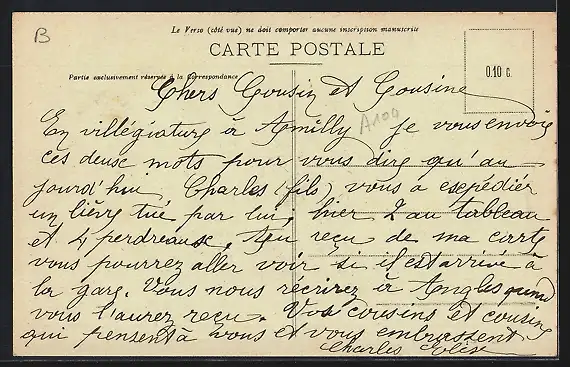 B
Le Verso (côté vue) ne doit comporter aucune inscription manuscrite
CARTE POSTALE
Partie exclusivement réservée à la Correspondance
0.10 c.
A100
Chers Cousin et Cousine
En villégiature à Amilly je vous envoie
ces deuse mots pour vous dire qu'au
jourd'hui Charles (fils) vous a esepédiér
un lièvre tué par lui, hier 2 au tableau
et 4 perdreause. Au reçu de ma carte
vous pourrez aller voir si il est arrivé à
la gare. Vous nous récrirez à Angles quand
vous l'aurez reçu. Vos cousins et cousine
qui pensent à vous et vous embrassent
Charles Elise